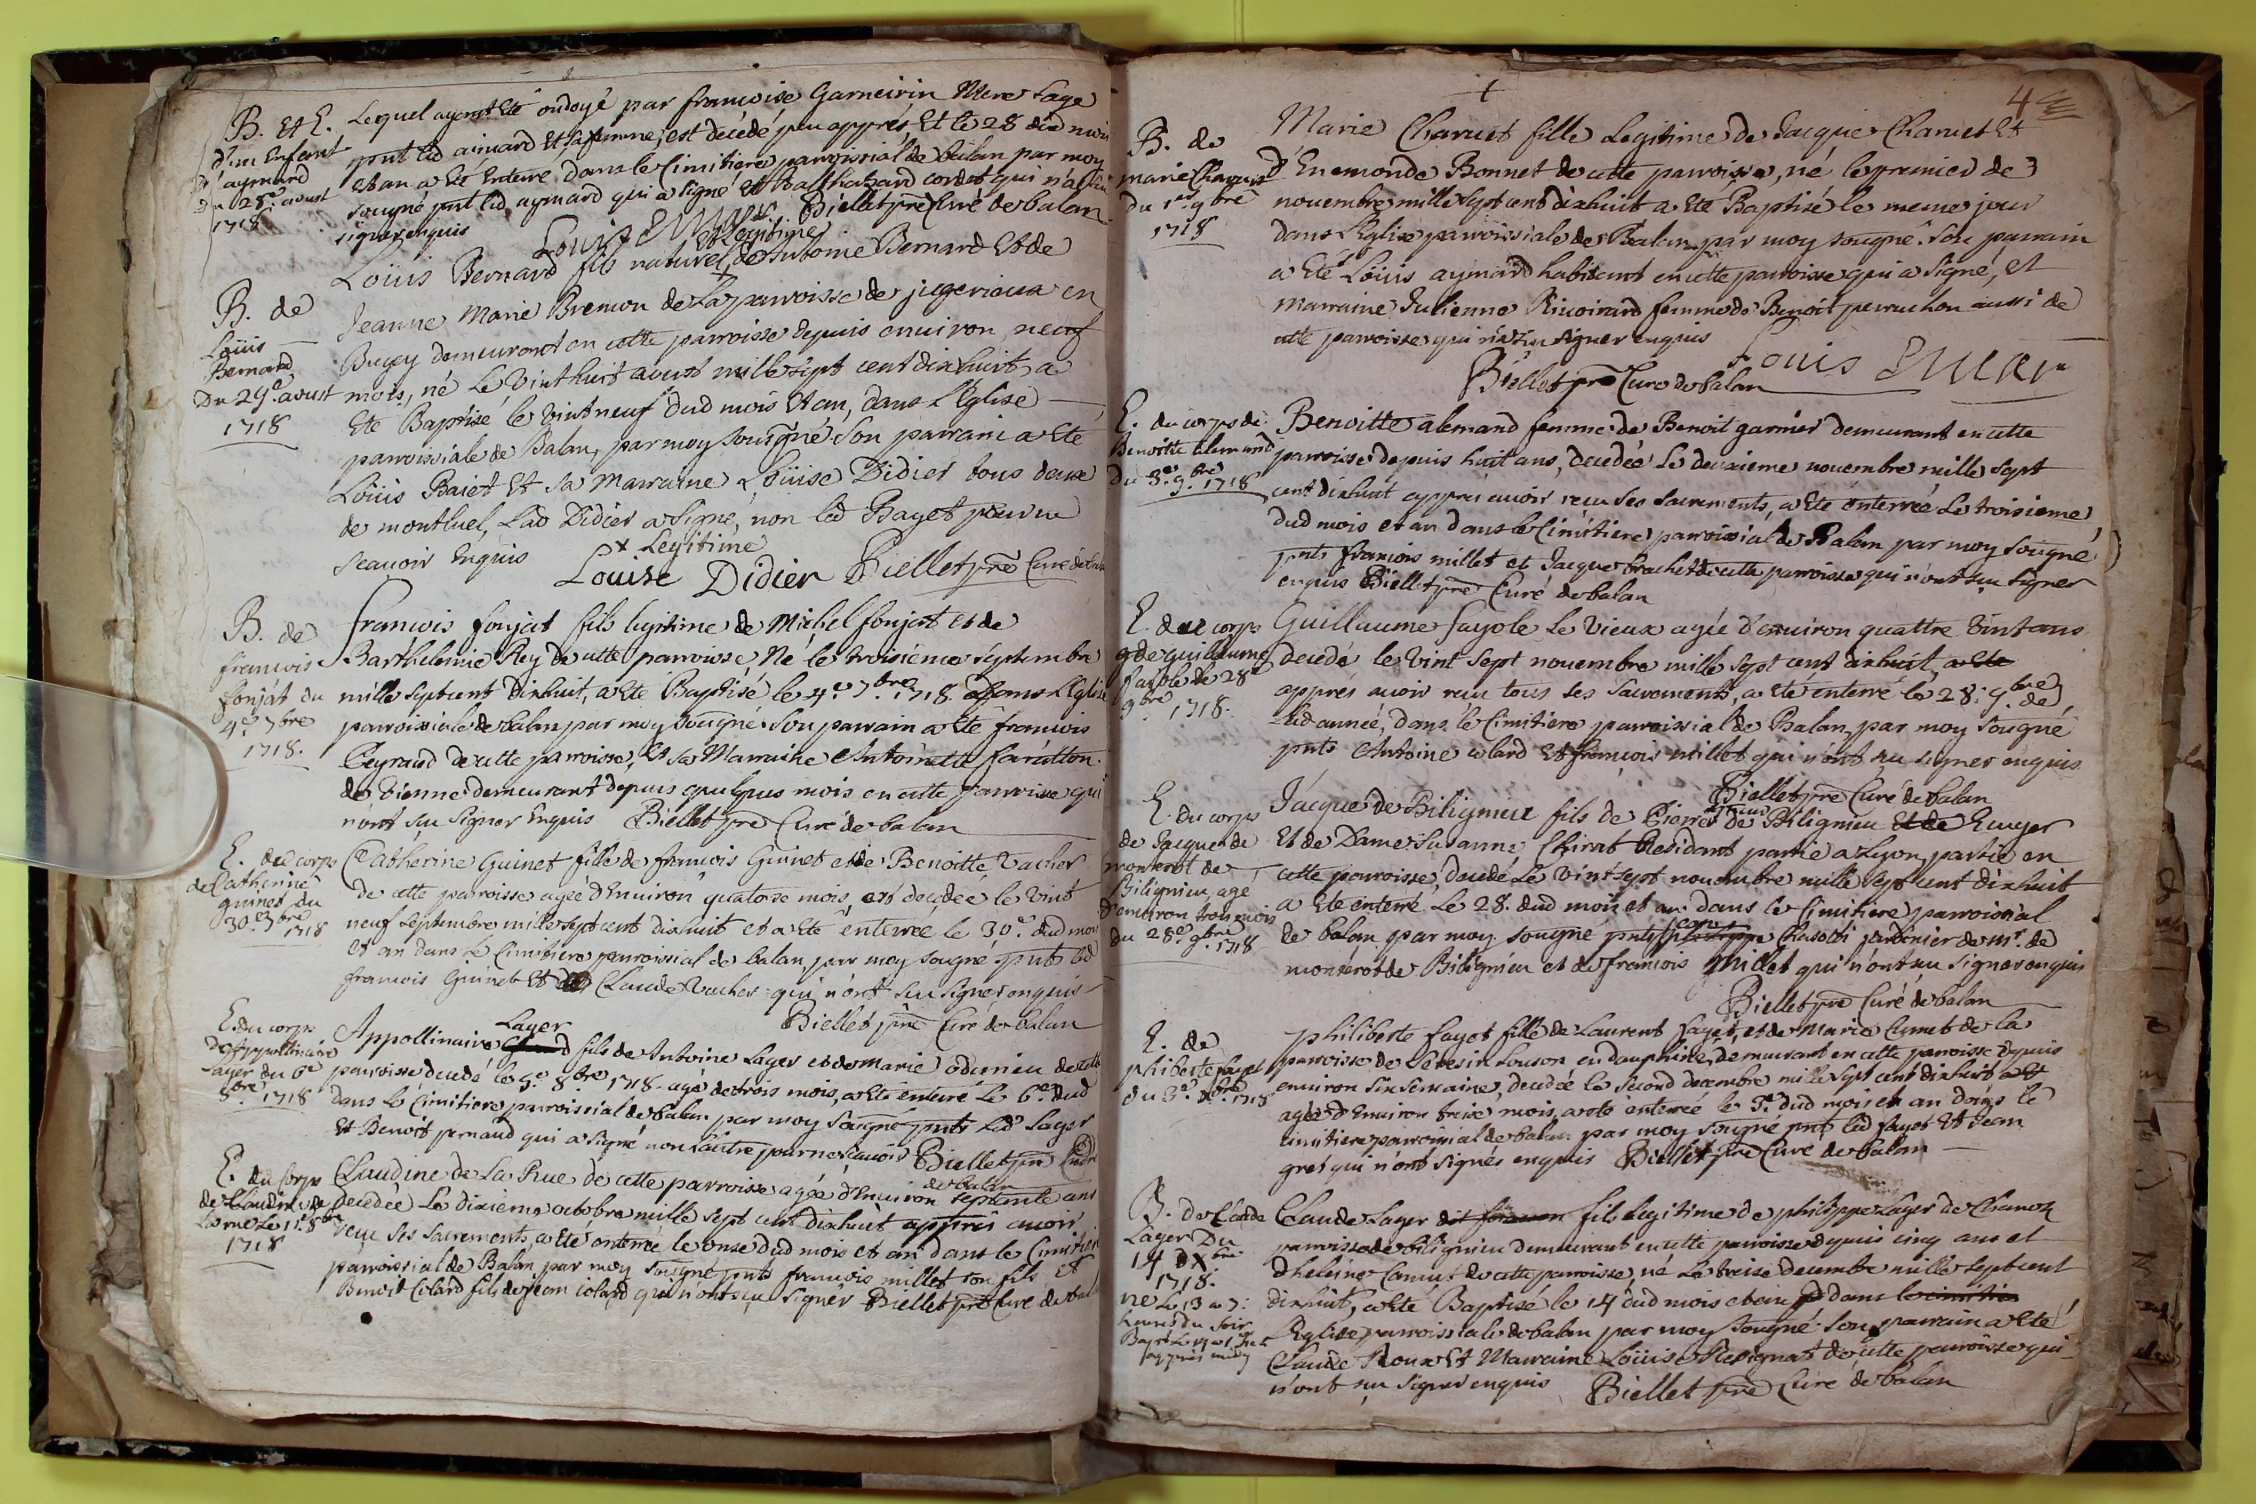 B. et E.
d'un Enfant
d'aymard
du 28e. aoust
1718
Lequel ayant Eté ondoyé par francoise Garneirin Mere Sage
pnt led aimard Et sa femme, est decédé peu apprés, Et le 28 dud mois
et an a Eté Enterré dans le Cimitiere parroissial de balan par moy
sougné pnt led aymard qui a signé Et Balthazard cordet qui n'a sceu
signer enquis Biellet pre Curé de balan
Louis EMAR
B. de
Loüis
Bernard
Du 29e. aoust
1718
et legitime
Loüis Bernard fils naturel de Antoine Bernard Et de
Jeanne Marie Brenon de La parroisse de jugerieux en
Bugey demeurant en cette parroisse depuis enuiron neuf
mois, né Le Vinthuit aoust mille sept cent dixhuit, a
Eté Baptisé le Vintneuf dud mois Et an, dans l'Eglise
parroissiale de Balan, par moy sousigné. Son parrain a Eté
Loüis Baiet Et sa marraine Loüise Didier tous deux
de montluel, Lad Didier a Signé, non led Bayet pour ne
sçauoir Enquis
+ Legitime
Louise Didier Biellet pre Curé de balan
B. de
francois
fonjat du
4e. 7bre
1718.
francois fonjat fils legitime de Michel fonjat et de
Barthelemie Rey de cette parroisse, Né le troisieme septembre
mille sept cent dixhuit, a Eté Baptisé le 4e. 7bre. 1718 dans l'Eglise
parroissiale de balan par moy sougné. Son parrain a Eté francois
Peyraud de cette parroisse, Et sa Marraine Antoinette
de Vienne demeurant depuis quelques mois en cette parroisse qui
n'ont sçu signer Enquis Biellet pre Curé de balan
E. du corps
de Catherine
guinet du
30e. 7bre
1718
Catherine Guinet fille de francois Guinet et de Benoitte Vacher
de cette parroisse agée d'Enuiron quatorse mois, est decedée le vint
neuf septembre mille sept cent dixhuit et a Eté enterrée le 30e. dud mois
et an dans Le Cimitiere parroissial de balan par moy sougné pnts led
francois Guinet Et Claude Vacher qui n'ont sçu signer enquis
Biellet pre Curé de balan
E. du corps
d'Appollinaire
Layer du 6e
8bre. 1718
Layer
Appollinaire fils de Antoine Layer et de Marie odunieu de cette
parroisse decedé le 5e. 8bre 1718. agé de trois mois, a Eté enterré Le 6e. dud
dans Le Cimitiere parroissial de balan par moy sougné pnts Led Layer
Et Benoit pernaud qui a signé non l'autre pour ne sçauoir Biellet pre Curé
de balan
E. du Corps
de Claudine de
La rue Le 11e. 8bre
1718
Claudine de La Rue de cette parroisse agée d'Enuiron septante ans
decedée Le dixieme octobre mille sept cent dixhuit apprés auoir
reçu ses sacrements, a Eté enterrée le onse dud mois et an dans le Cimitiere
parroissial de Balan par moy sougné pnts francois millet son fils et
Benoit Colard fils de Jean Colard qui n'ont sçu signer Biellet pre Curé de balan
4
+
B. de
marie Charuet
du 1er. 9bre
1718
Marie Charuet fille Legitime de Jacque Charuet Et
d'Enemonde Bonnet de cette parroisse, né le premier de
nouembre mille sept cent dixhuit a Eté Baptisé le meme jour
dans l'Eglise parroissiale de Balan par moy sougné. Son parrain
a Eté Loüis aymard habitant en cette parroisse qui a signé, Et
marraine Julienne Riuoirard femme de Benoit perruchon aussi de
cette parroisse qui n'a sçu signer enquis
Louis EMAR
Biellet pre Curé de balan
E. du corps de
Benoitte alemand
du 3e. 9bre. 1718
Benoitte alemand femme de Benoit garnier demeurant en cette
parroisse depuis huit ans, decedée Le deuxieme nouembre mille sept
cent dixhuit apprés auoir reçu ses sacrements, a Eté enterrée Le troisieme
dud mois et an dans le Cimitiere parroissial de Balan par moy sougné
pnts francois millet et Jacque brachet de cette parroisse qui n'ont sçu signer
enquis Biellet pre Curé de balan
E. du corps
de guillaume
fayole le 28e
9bre 1718.
Guillaume fayole Le Vieux agée d'enuiron quattre Vint ans
decedé le Vint sept nouembre mille sept cent dixhuit, a Eté
apprés auoir reçu tous ses sacrements, a Eté enterré le 28. 9bre de
lad année, dans le Cimitiere parroissial de Balan par moy sougné
pnts Antoine colard Et francois millet qui n'ont sçu signer enquis
Biellet pre Curé de balan
E. du corps
de Jacque de
monterot de
Bilignieu agé
d'enuiron trois mois
du 28e. 9bre. 1718
Jacque de Bilignieu fils de Pierre de Bilignieu Et de Ecuyer
Et de Dame Susanne Chirat Residant partie a Lyon, partie en
cette parroisse, decedé Le vintsept nouembre mille sept cent dixhuit
a Eté enterré Le 28. dud mois et an dans le Cimitiere parroissial
de balan par moy sougné pnts Chasotti jardinier de mr. de
monterot de Bilignieu et de francois Millet qui n'ont sçu signer enquis
Biellet pre Curé de balan
E. de
philiberte fayet
du 3e. Xbre 1718
Philiberte fayet fille de Laurent fayet, et de Marie Cumet de la
parroisse de en dauphiné, demeurant en cette parroisse depuis
enuiron six semaine, decedée le second decembre mille sept cent dixhuit
agée d'Enuiron treise mois, a eté enterrée le 3e. dud mois et an dans le
cimitiere parroissial de balan par moy sougné pnts led fayet Et Jean
gret qui n'ont signés enquis Biellet pre Curé de balan
B. de Claude
Layer Du
14 dXbre
1718.
né Le 13 a 7
heures du soir
apprés midy
Claude Layer fils legitime de philippe Layer de Chanoz
parroisse de bilignieu demeurant en cette parroisse depuis cinq ans et
d'heleine Camus de cette parroisse, né Le treise decembre mille sept cent
dixhuit, a Eté Baptisé le 14 dud mois et an dans le cimitiere
l'Eglise parroissiale de balan par moy sougné. Son parrain a Eté
Claude Roux Et Marraine Loüise Resignat de cette parroisse qui
n'ont sçu signer enquis Biellet pre Curé de balan